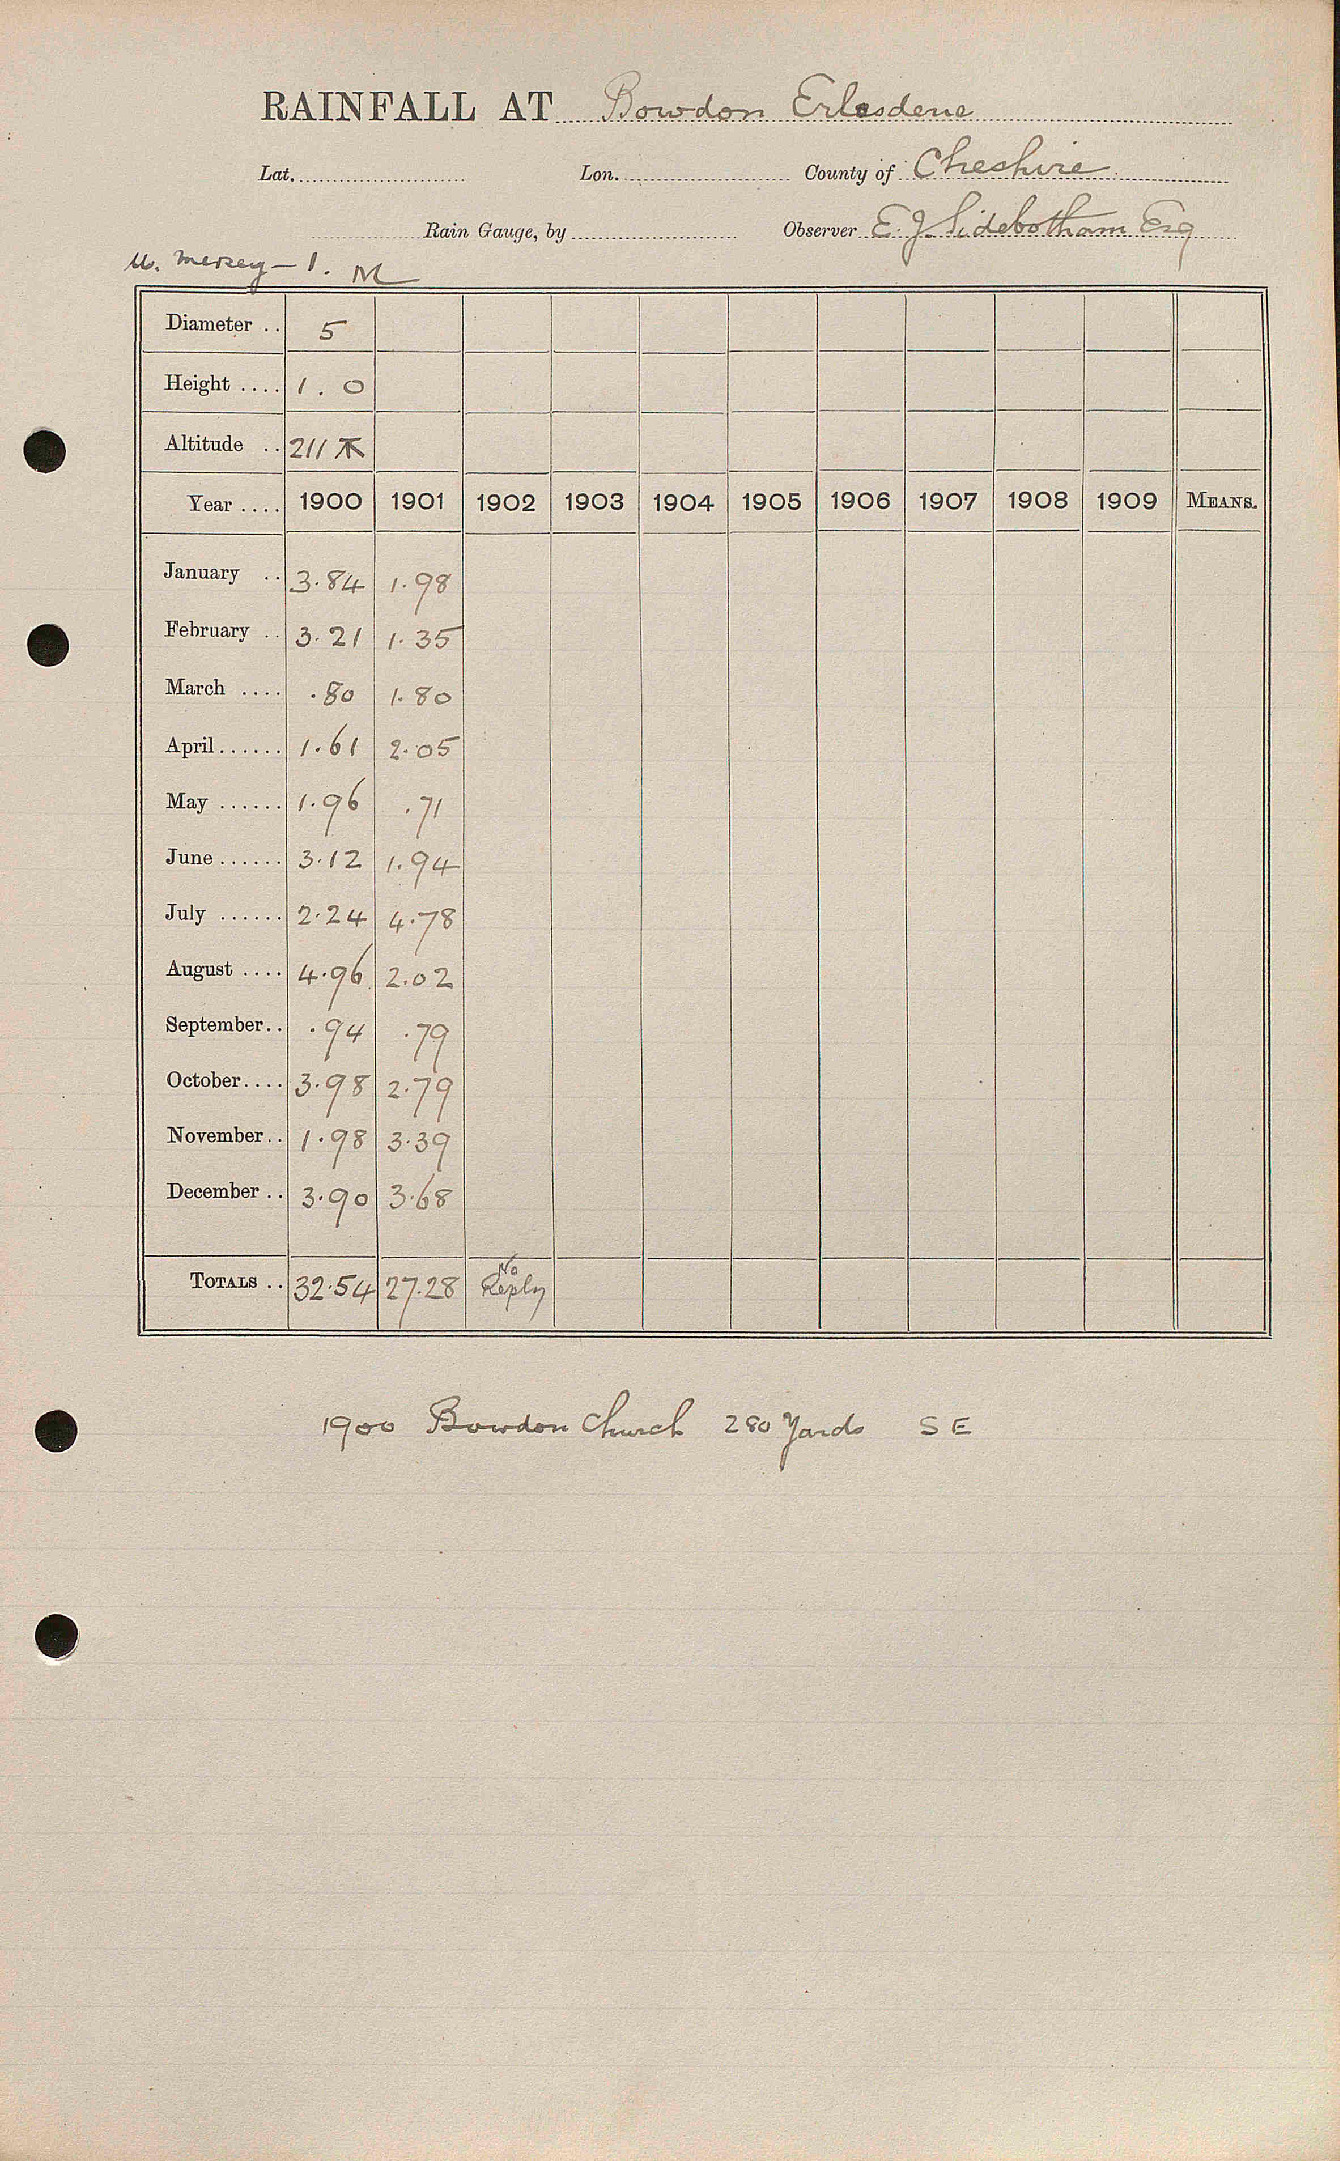 RAINFALL AT Bowdon Erlesdene
Lat. Lon. County of Cheshire
Rain Gauge, by Observer E. J. Sidebotham Esq
u. Mersey — 1. M
Diameter .. 5
Height .... 1 . 0
Altitude .. 211
Year .... 1900 1901 1902 1903 1904 1905 1906 1907 1908 1909 MEANS.
January .. 3.84 1.98
February .. 3.21 1.35
March .... .80 1.80
April ...... 1.61 2.05
May ...... 1.96 .71
June ...... 3.12 1.94
July ...... 2.24 4.78
August .... 4.96 2.02
September .. .94 .79
October .... 3.98 2.79
November .. 1.98 3.39
December .. 3.90 3.68
TOTALS .. 32.54 27.28 No Reply
1900 Bowdon Church 280 Yards S E